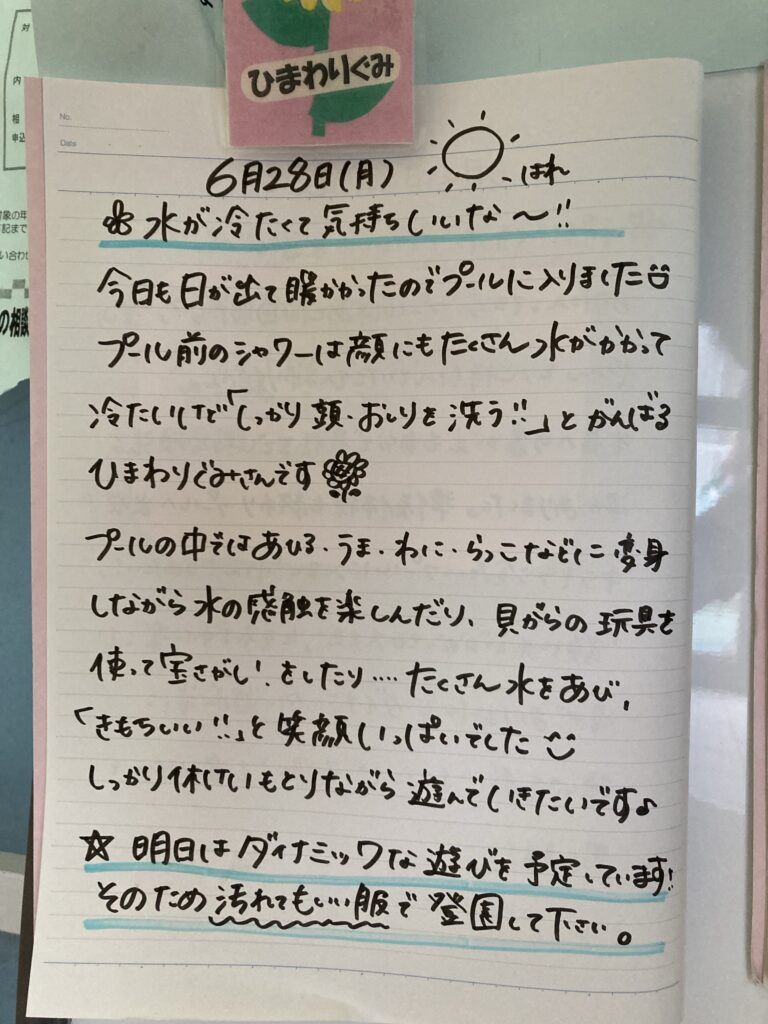 対
内
相
申込
対象の年
下記まで
い合わせ
の相談
ひまわりぐみ
No.
Date
6月28日(月)
はれ
水が冷たくて気持ちいいな〜!!
今日も日が出て暖かかったのでプールに入りました
プール前のシャワーは顔にもたくさん水がかかって
冷たいけど「しっかり頭・おしりを洗う!!」とがんばる
ひまわりぐみさんです
プールの中ではあひる・うま・わに・らっこなどに変身
しながら水の感触を楽しんだり、貝がらの玩具を
使って宝さがしをしたり....たくさん水をあび、
「きもちいい!!」と笑顔いっぱいでした
しっかり休けいもとりながら遊んでいきたいです♪
☆明日はダイナミックな遊びを予定しています!
そのため汚れてもいい服で登園して下さい。